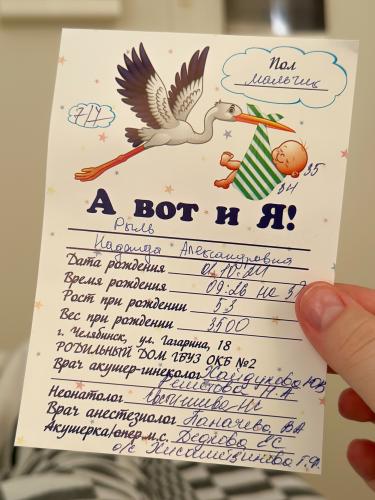 Пол
мальчик
7/7
35
34
А вот и Я!
Рыль
Надежда Александровна
Дата рождения
Время рождения 09:26
Рост при рождении 53
Вес при рождении 3500
г. Челябинск, ул. Гагарина, 18
РОДИЛЬНЫЙ ДОМ ГБУЗ ОКБ №2
Врач акушер-гинеколог Хайдукова
Неонатолог
Врач анестезиолог Паначева ВА
Акушерка/опер.м.с. ЕС
о/с